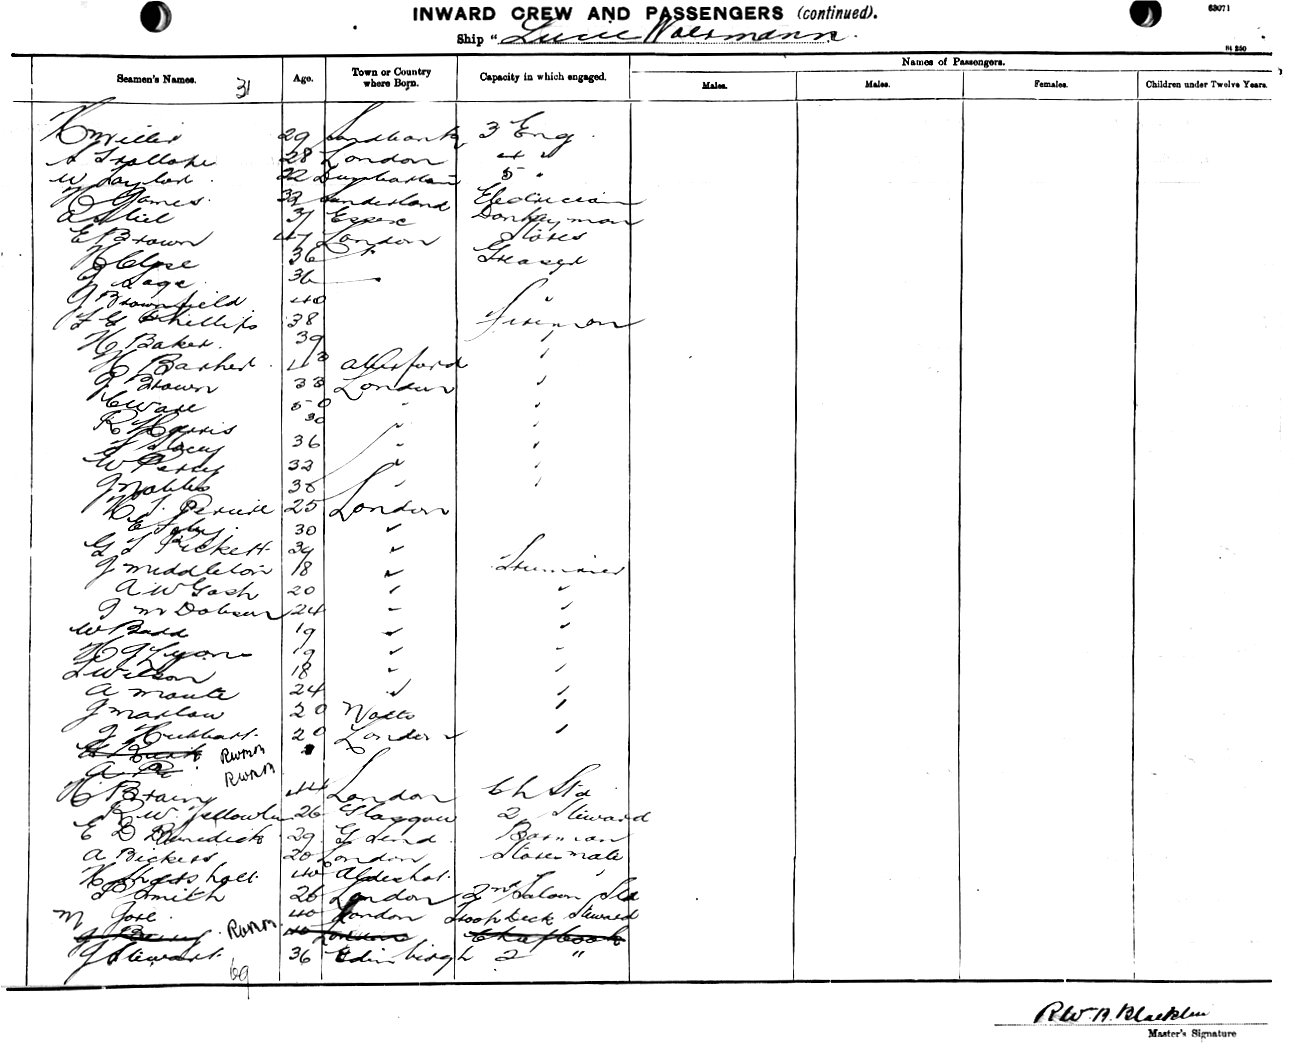 INWARD CREW AND PASSENGERS (continued).
63071
Ship "Lucie Woermann
Names of Passengers.
Seamen's Names. Age. Town or Country where Born. Capacity in which engaged. Males. Males. Females. Children under Twelve Years.
31
H Miller 29 Sandbank 3 Eng
A Trollope 28 London 4 "
W Taylor 22 Dumbarton 5 "
James 32 Sunderland Electrician
A Stiel 31 Essex Donkeyman
E Brown 47 London Stores
H Close 36 " Greaser
G Sage 36
J Brownfield 40 "
F G Phillips 38 Fireman
H Baker 39 "
H Barker 43 Allesford "
J Brown 33 London "
C Ware 50 " "
R Harris 30 " "
F Stacey 36 " "
W Perry 32 " "
J Nobbs 38 " "
H J 25 London
E 30 "
G T Pickett 39 "
J Middleton 18 " Trimmer
A W Gash 20 " "
J M Dobson 24 " "
W Budd 19 " "
H J Lyons 19 " "
L Wilson 18 " "
A Moule 24 " "
J Marlow 20 Notts "
J Hubbart 20 London "
RWMM
A
RWMM
H Brain 44 London Ch Std
R. W. Yellowlee 26 Glasgow 2 Steward
E D Benedick 29 G Send Barman
A Bickers 20 London Storemate
H 40 Aldeshot
T Smith 26 London 2nd Saloon Std
M Gore 40 London Troopdeck Steward
J RWMM 40 London Chef Cook
J Stewart 36 Edinburgh 2 "
69
R.W.A. Blacklin
Master's Signature